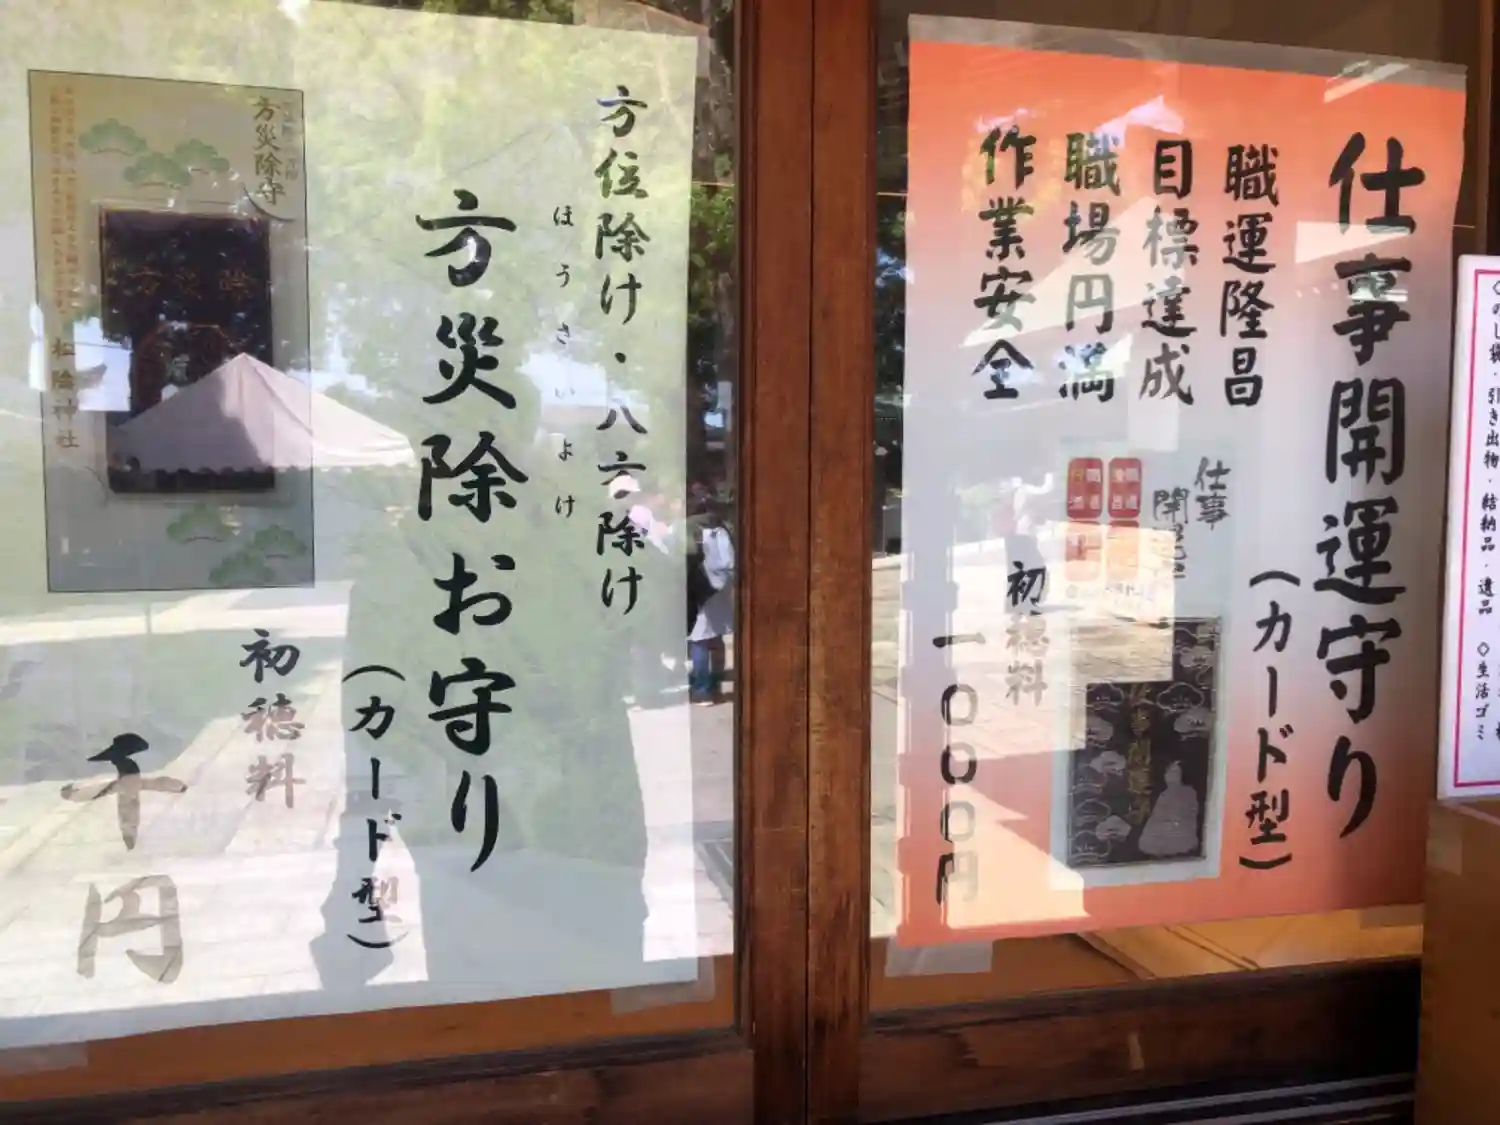 仕事開運守り
(カード型)
職運隆昌
目標達成
職場円満
作業安全
仕事
開運
初穂料
一〇〇〇円
方位除け・八方除け
ほうさいよけ
方災除お守り
(カード型)
初穂料
千円
方災除守
方災除
松陰神社
引き出物・結納品・遺品
◇生活ゴミ